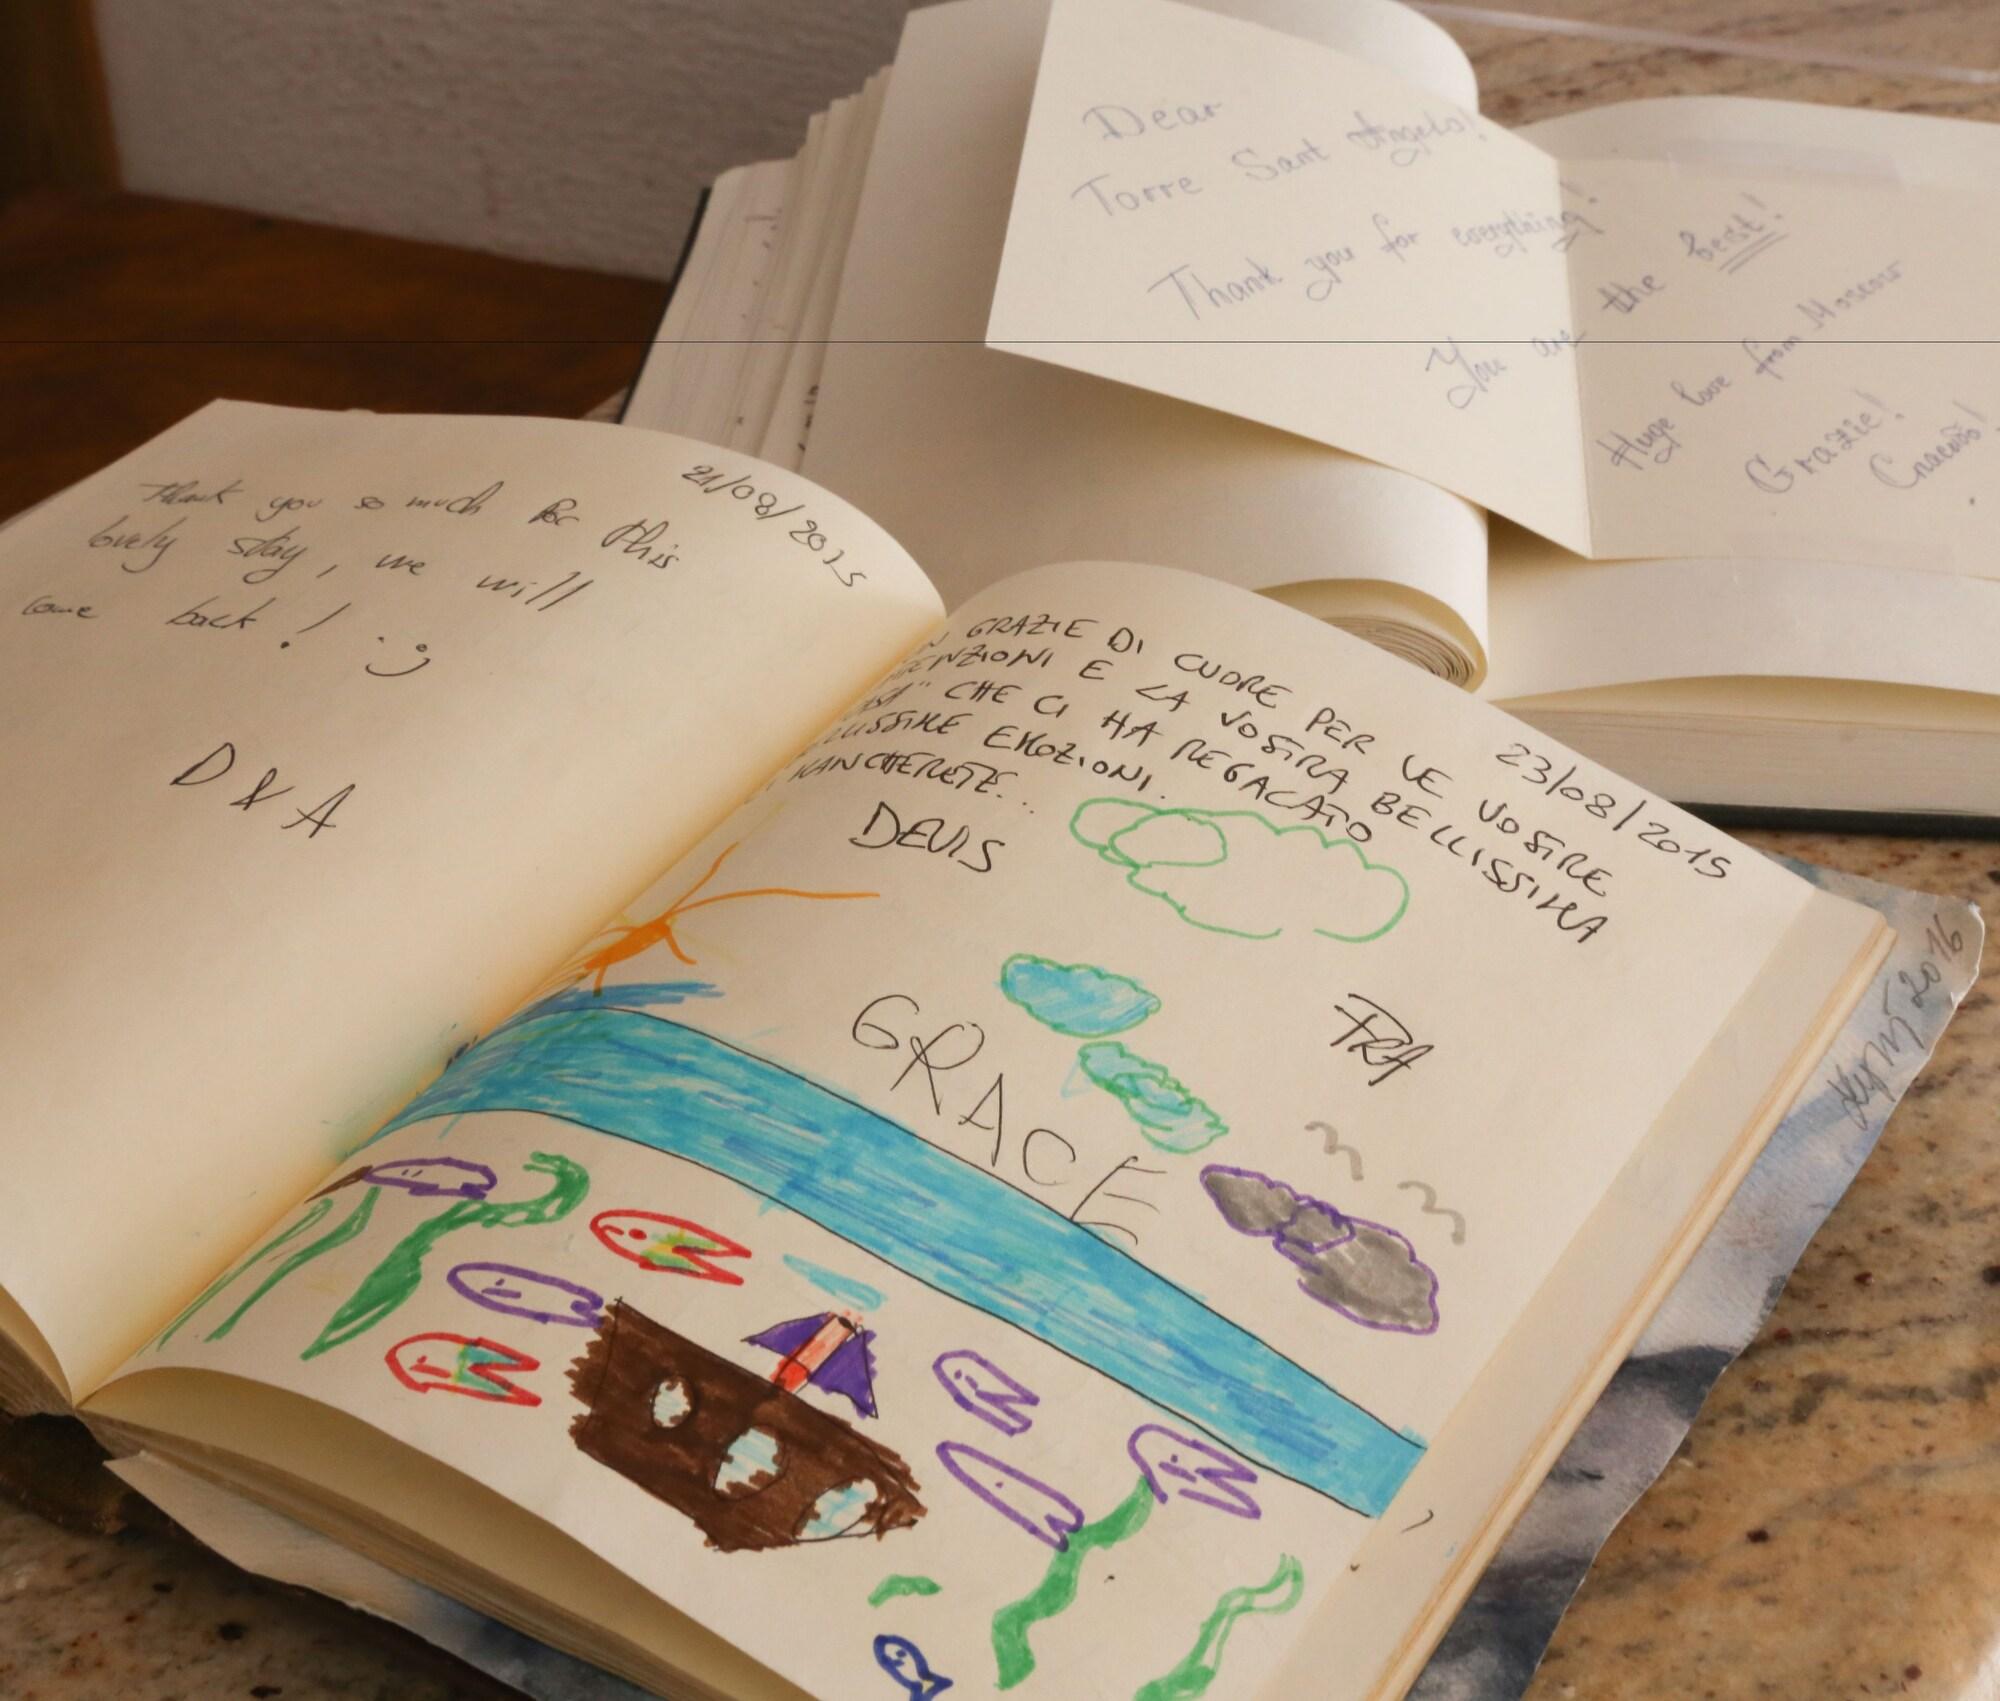 Dear
Torre Sant Angelo!
Thank you for everything!
You are the best!
Huge love from Moscow
Grazie!
Спасибо!
21/08/2015
Thank you so much for this
lovely stay, we will
come back! :)
D & A
23/08/2015
GRAZIE DI CUORE PER LE VOSTRE
E LA VOSTRA BELLISSIMA
CHE CI HA REGALATO
EMOZIONI.
MANCHERETE...
DEVIS
FRA
GRACE
2016